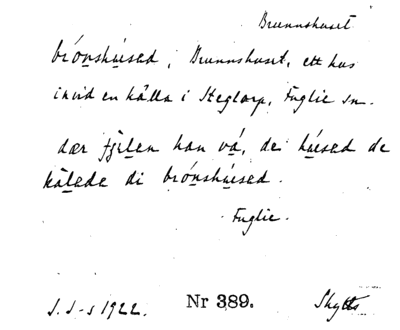 Brunnshuset
brónshúsed, Brunnshuset, ett hus
invid en källa i Steglarp, Fuglie sn.
dær fjilen han vá, de húsed de
kálede di brónshúsed.
Fuglie.
S. I-s 1922. Nr 389. Skytts